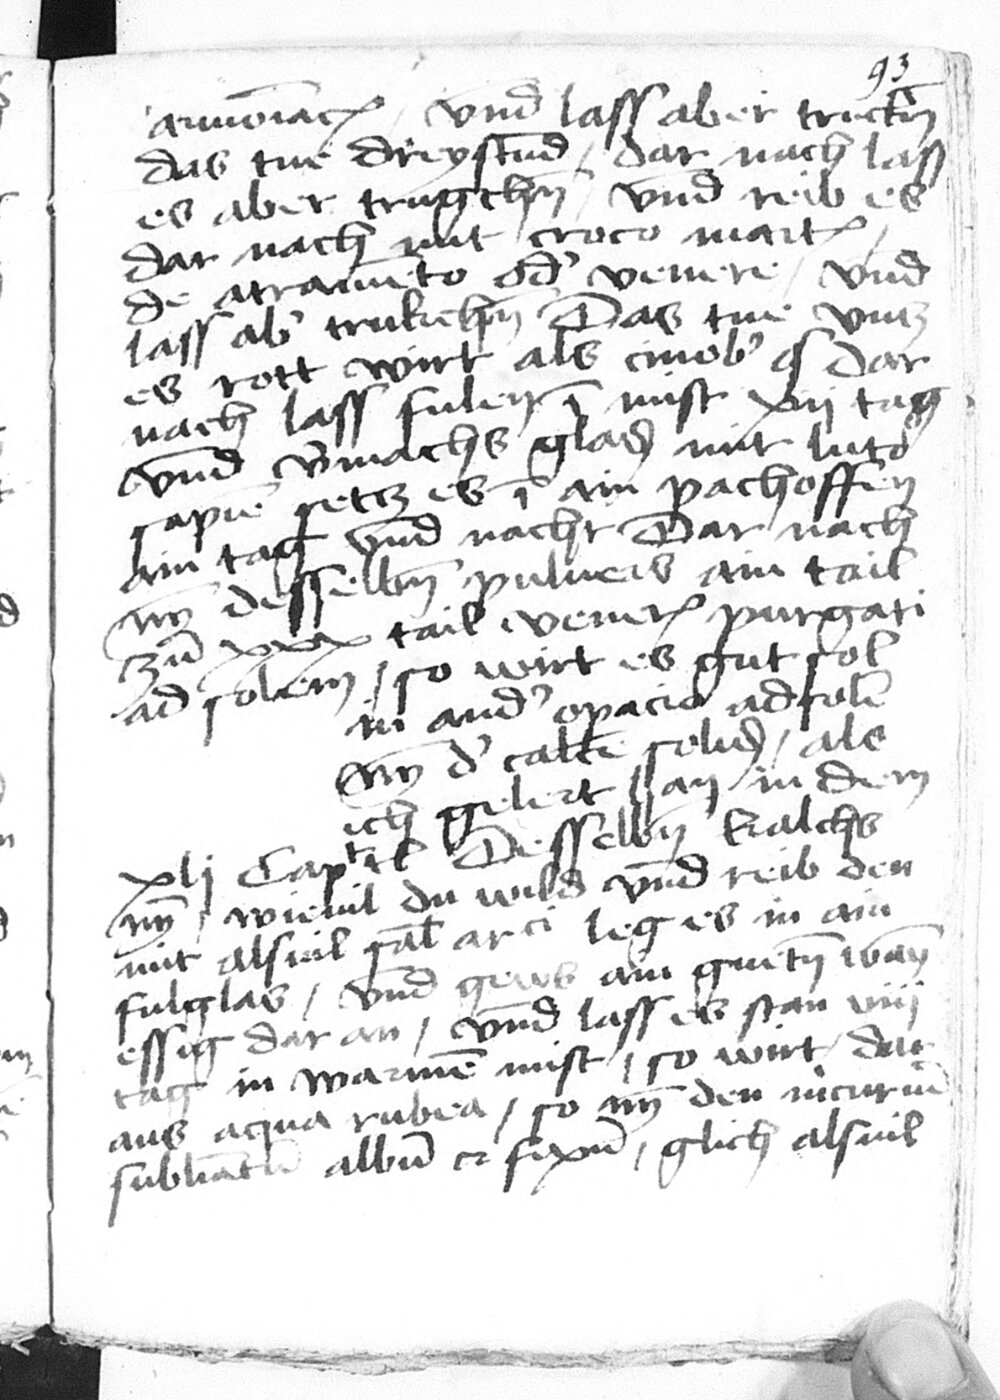 93
armoniac / vnd lass aber truckn
das tue dreystund / dar nach lass
es aber trugchn / vnd reib es
dar nach mit croco mart /
de atramēto od' venere / vnd
lass ab' trukchn Das tue vntz
es rott wirt als cinob' dar
nach lass fulen ī mist xiij tag
vnd v'machs glas mit luto
sapiē setz es ī ain pachoffen
ain tag vnd nacht Dar nach
nym desselbn puluers ain tail
zu xxx tail vener purgati
ad solem / so wirt es gut sol
in and' opacio ad solē
Nym d' calcē solis / als
ich gelert han in dem
xlj Capitl Desselbn kalchs
nym / wieuil du wild vnd reib den
mit alsuil sal arci leg es in ain
fulglas / vnd gews ain guetn wan
essig dar an / vnd lass es stan viij
tag in warmē mist / so wirt dar
aus acqua rubea / so nym den mcuriū
sublimatū albū et fixū / glich alsuil